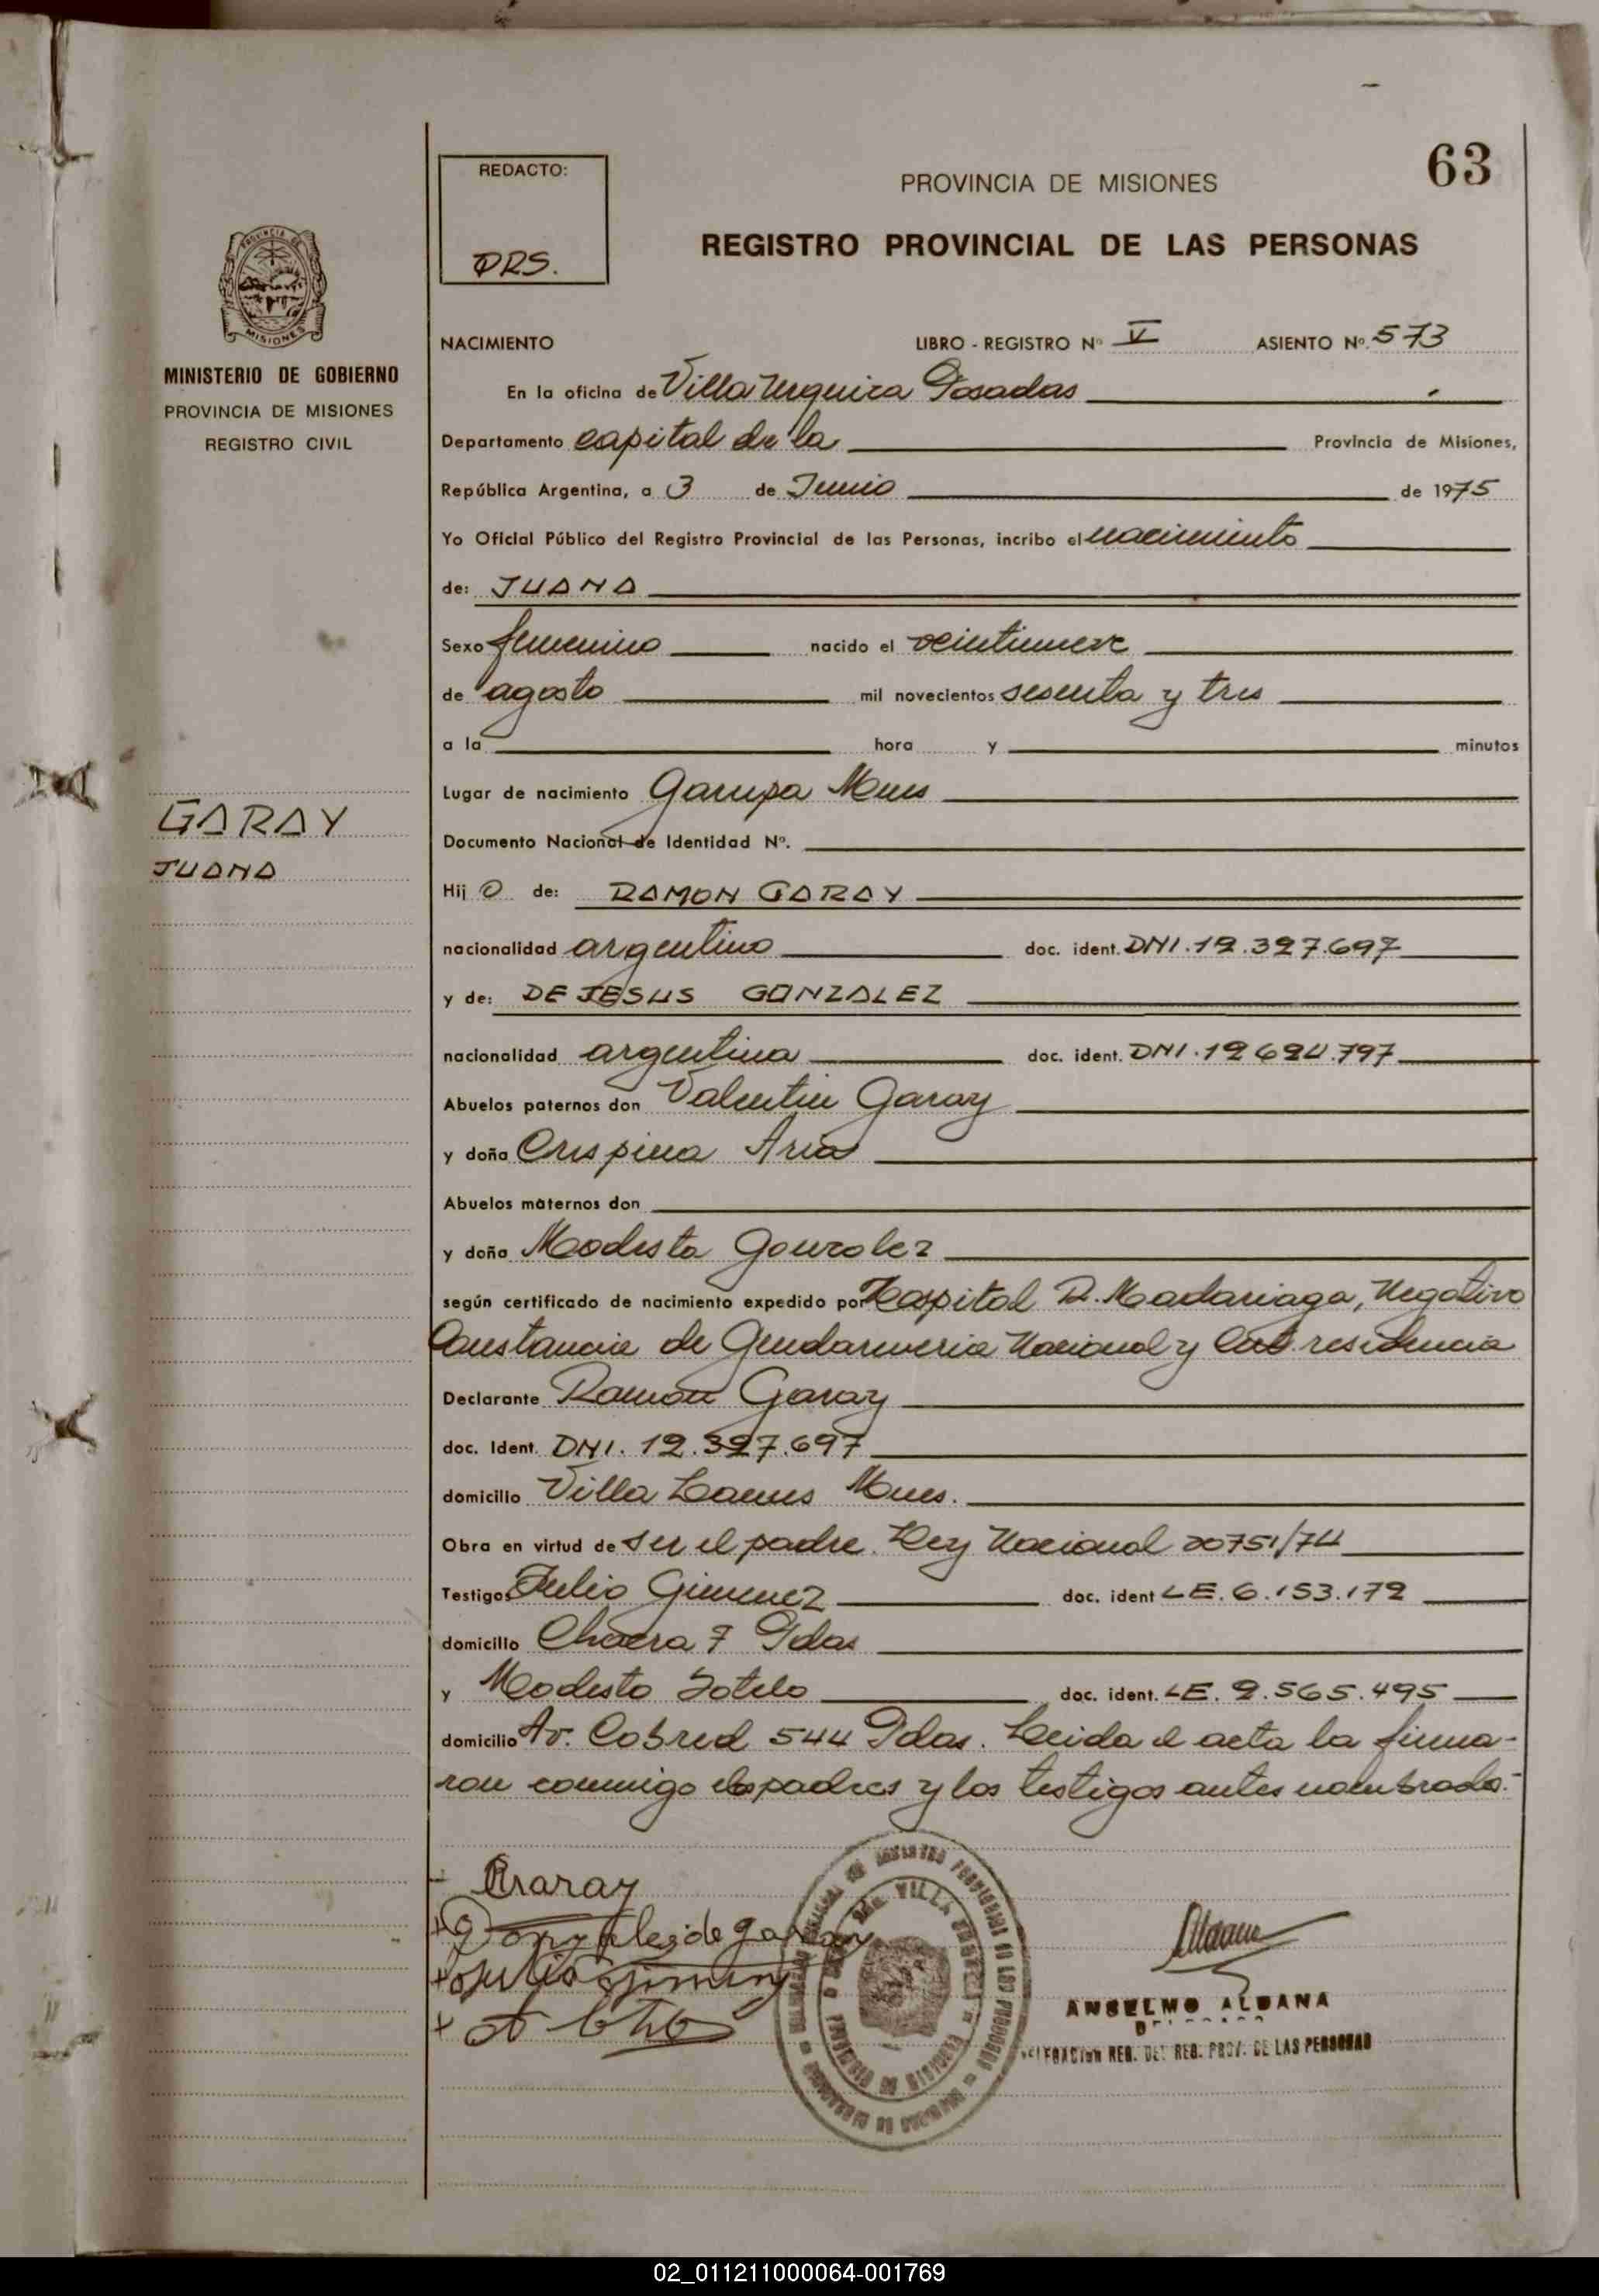 63
REDACTO:
DRS.
PROVINCIA DE MISIONES
REGISTRO PROVINCIAL DE LAS PERSONAS
PROVINCIA DE
MISIONES
MINISTERIO DE GOBIERNO
PROVINCIA DE MISIONES
REGISTRO CIVIL
GARAY
JUANA
NACIMIENTO LIBRO - REGISTRO Nº V ASIENTO Nº 573
En la oficina de Villa Urquiza Posadas
Departamento capital de la Provincia de Misiones,
República Argentina, a 3 de Junio de 1975
Yo Oficial Público del Registro Provincial de las Personas, incribo el nacimiento
de: JUANA
Sexo femenino nacido el veintinueve
de agosto mil novecientos sesenta y tres
a la hora y minutos
Lugar de nacimiento Garupa Mnes
Documento Nacional de Identidad Nº.
Hij O de: RAMON GARAY
nacionalidad argentino doc. ident. DNI. 12.327.697
y de: DE JESUS GONZALEZ
nacionalidad argentina doc. ident. DNI. 12 624.797
Abuelos paternos don Valentin Garay
y doña Crispina Aria
Abuelos maternos don
y doña Modesta Gonzalez
según certificado de nacimiento expedido por Hospital R. Madariaga, Negativo
Constancia de Gendarmeria Nacional y residencia
Declarante Ramon Garay
doc. Ident. DNI. 12.327.697
domicilio Villa Lanus Mnes.
Obra en virtud de ser el padre. Ley Nacional 20751/74
Testigos Julio Gimenez doc. ident LE. 6.153.172
domicilio Chacra 7 Pdas
y Modesto Sotelo doc. ident. LE. 2.565.495
domicilio Av. Cabred 544 Pdas. Leida el acta la firma-
ron conmigo los padres y los testigos antes nombrados.-
RGaray
Gonzalez de garay
Julio Gimenez
ANSELMO ALDANA
DELEGADO
DELEGACION REG. DEL REG. PROV. DE LAS PERSONAS
02_011211000064-001769